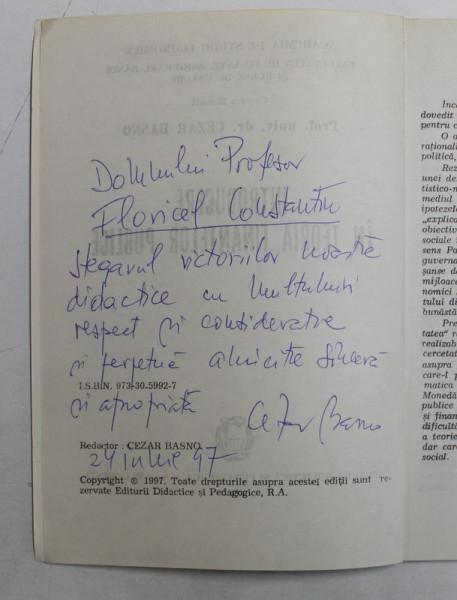 Domnului Profesor
Floricel Constantin
stegarul victoriilor noastre
didactice cu mulțumiri
respect și considerație
și perpetuă amiciție sinceră
I.S.B.N. 973-30-5992-7
și apropiată Cezar Basno
Redactor : CEZAR BASNO
24 iunie 97
Copyright © 1997. Toate drepturile asupra acestei ediții sunt re-
zervate Editurii Didactice și Pedagogice, R.A.
Înce
dovedit
pentru c
O a
rațională
politică,
Rez
unei de
tistico-m
mediul
ipotezelo
„explica
obiectiv
sociale
sens Po
guverna
șanse d
mijloac
nomici
tului di
bunăstă
Pre
tatea" r
realizab
cercetat
asupra
care-l p
matica
Monedă
publice
și finan
dificultă
a teorie
dar care
social.